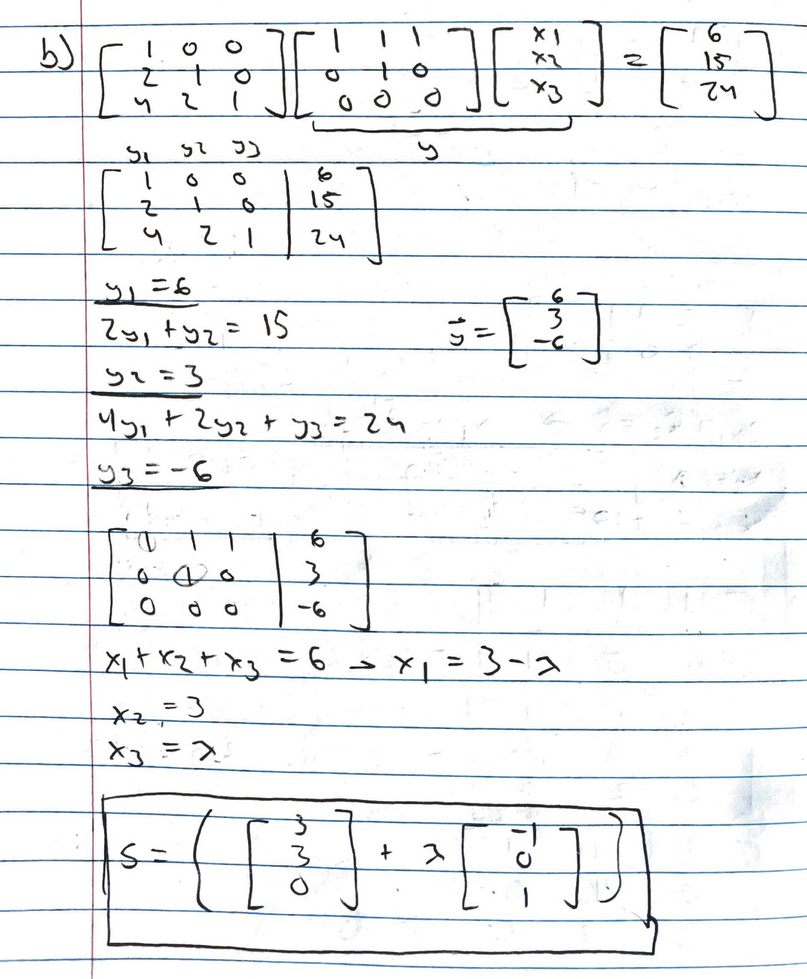 b) [1 0 0; 2 1 0; 4 2 1] [1 1 1; 0 1 0; 0 0 0] [x1; x2; x3] = [6; 15; 24]
y
y1 y2 y3
[1 0 0 | 6; 2 1 0 | 15; 4 2 1 | 24]
y1 = 6
2y1 + y2 = 15
y⃗ = [6; 3; -6]
y2 = 3
4y1 + 2y2 + y3 = 24
y3 = -6
[1 1 1 | 6; 0 1 0 | 3; 0 0 0 | -6]
x1 + x2 + x3 = 6 → x1 = 3 - λ
x2 = 3
x3 = λ
S = ( [3; 3; 0] + λ [-1; 0; 1] )